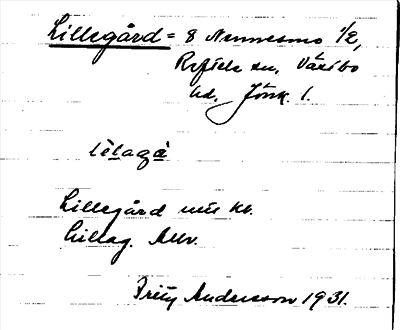 Lillegård = 8 Nennesmo 1/2,
Reftele sn, Västbo
hd, Jönk. l.
lìlagà
Lillegård
Lillag. Allr.
Fritz Andersson 1931.